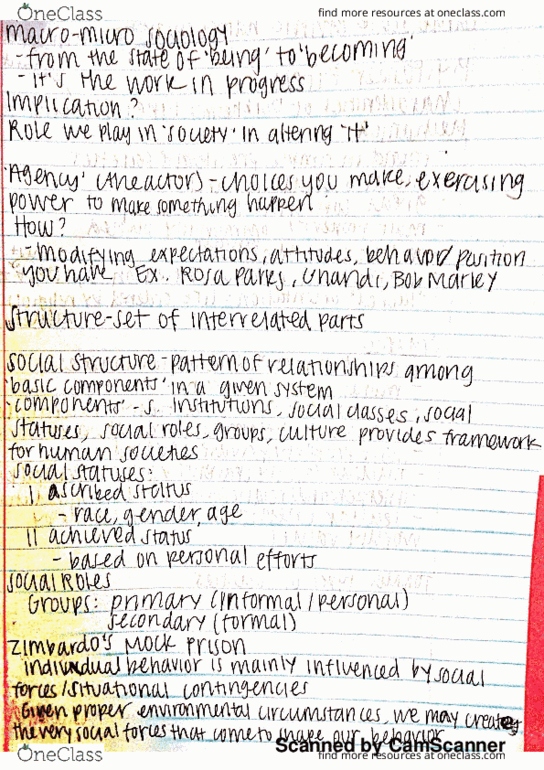 OneClass find more resources at oneclass.com
macro-micro sociology
- from the state of 'being' to 'becoming'
- it's the work in progress
Implication?
Role we play in 'society' in altering 'it'
'Agency' (the actor) - choices you make, exercising
power to make something happen
How?
- modifying expectations, attitudes, behavior/position
you have Ex. Rosa Parks, Ghandi, Bob Marley
structure - set of interrelated parts
social structure - pattern of relationships among
'basic components' in a given system
'components' - s. institutions, social classes, social
statuses, social roles, groups, culture provides framework
for human societies
social statuses:
I ascribed status
- race, gender, age
II achieved status
- based on personal efforts
Social Roles
Groups: primary (informal/personal)
secondary (formal)
Zimbardo's Mock Prison
individual behavior is mainly influenced by social
forces/situational contingencies
Given proper environmental circumstances, we may create
the very social forces that come to shape our behavior
Scanned by CamScanner
OneClass find more resources at oneclass.com